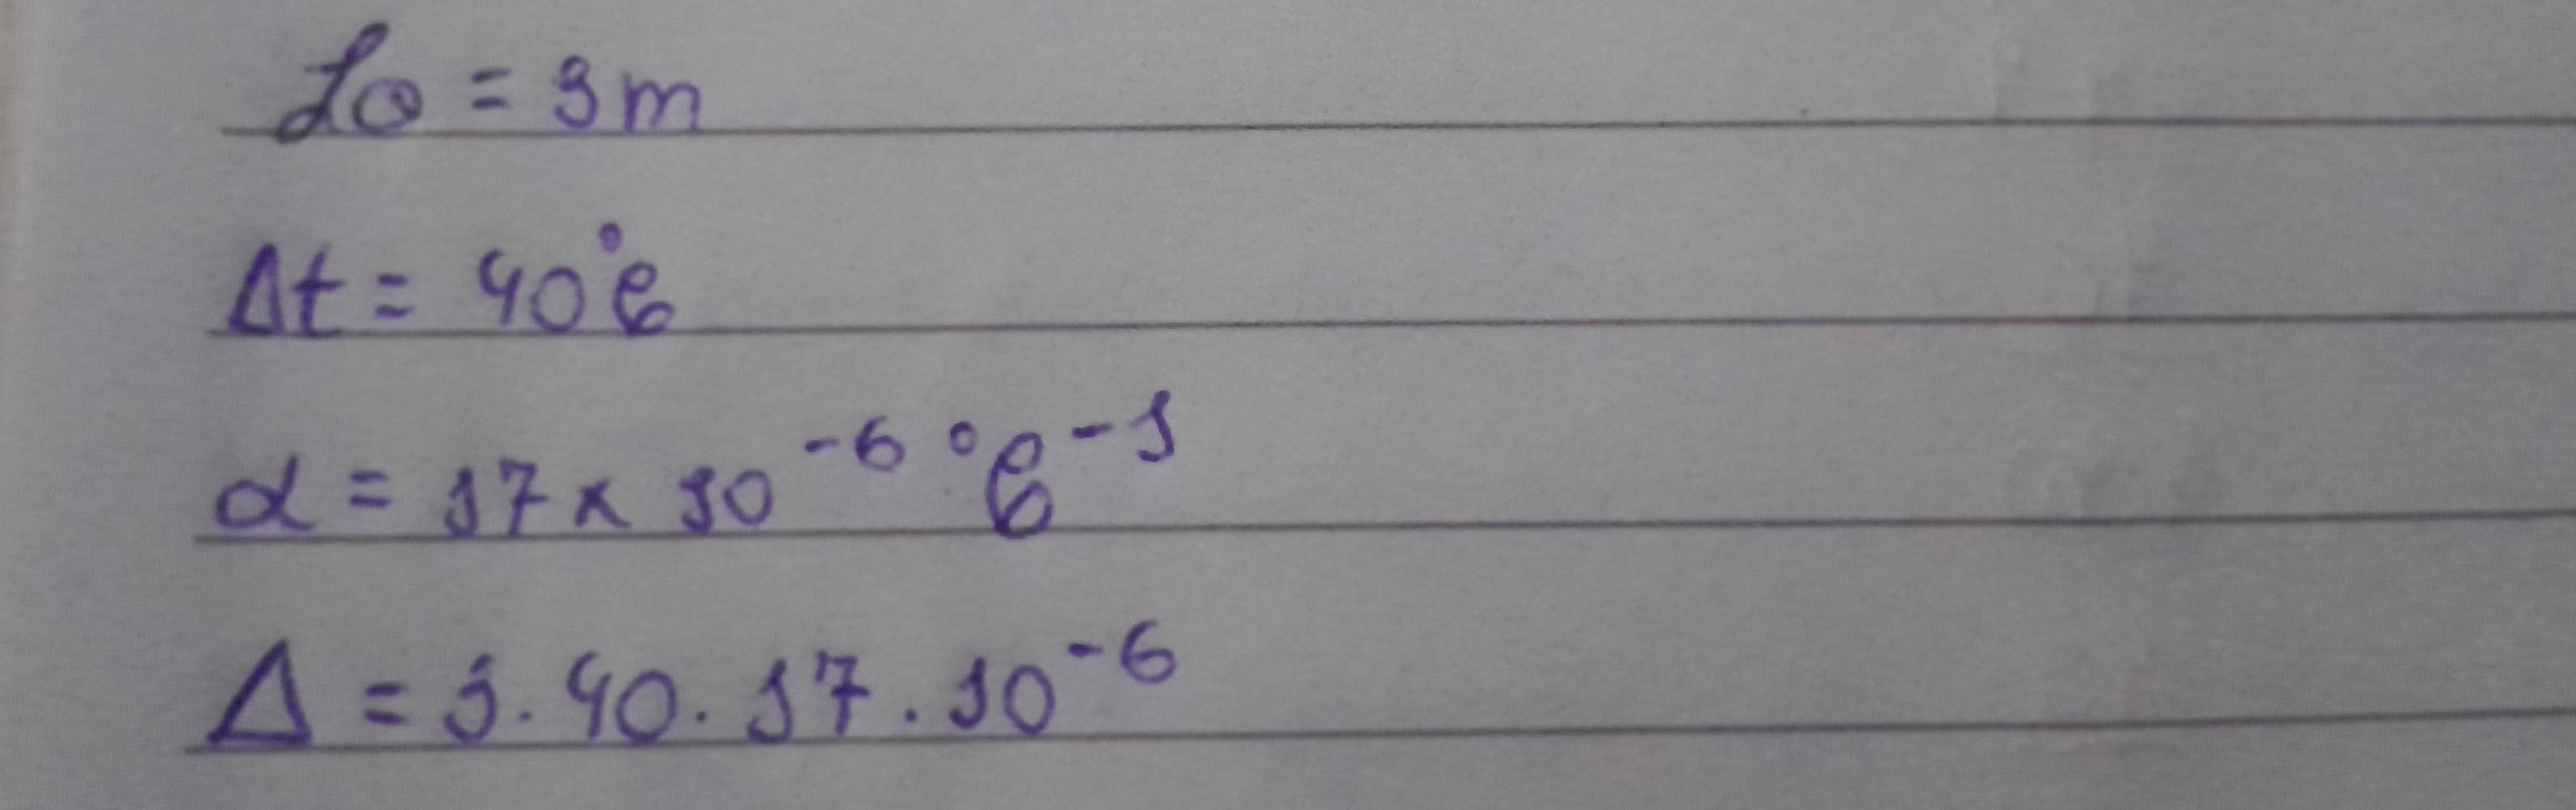 L0 = 1m
Δt = 40°C
α = 17 x 10^-6 °C^-1
Δ = 1 . 40 . 17 . 10^-6